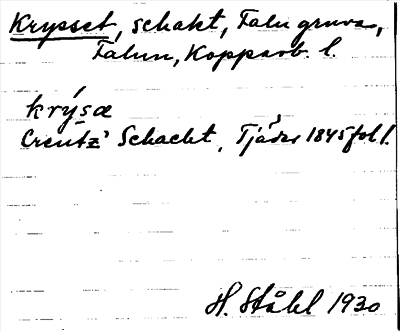 Krysset, schakt, Falu gruva,
Falun, Kopparb. l.
krýsæ
Creutz' Schacht, 1845 fol 1.
H. Ståhl 1930